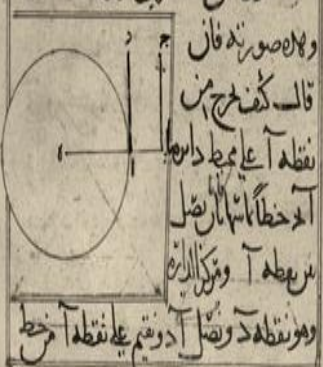 وهذه صورته فان
قال كيف نخرج من
نقطة آ على محيط دائرة
آ خطاً يماسها بان نصل
بين نقطة آ ومركز الدائرة
وهو نقطة د ونصل آ د ونقيم على نقطة آ من خط
ج
د
ا
ه